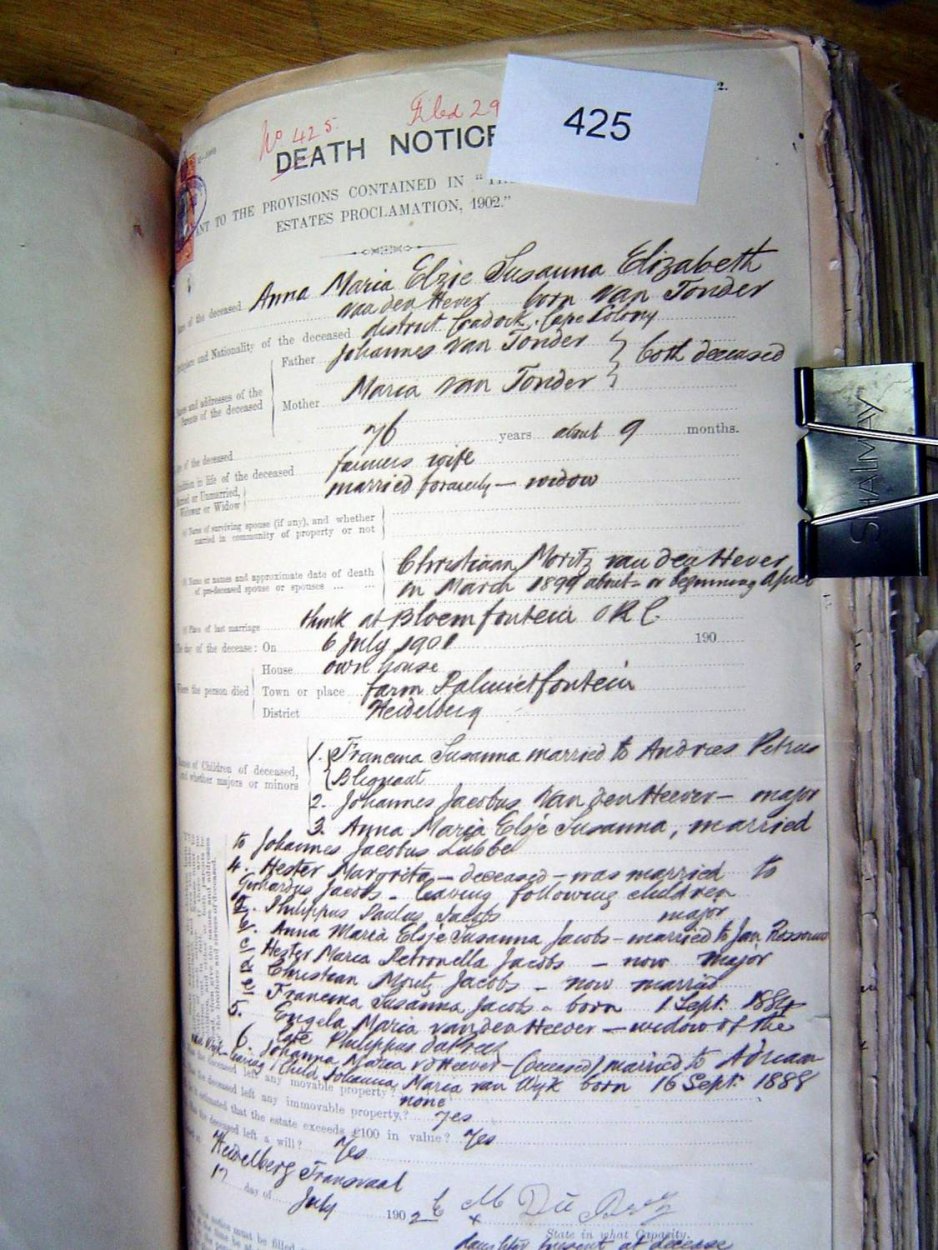 No 425. Filed 29
425
2.
DEATH NOTICE
ANT TO THE PROVISIONS CONTAINED IN "
ESTATES PROCLAMATION, 1902."
of the deceased Anna Maria Elzie Susanna Elizabeth
van den Hever born van Tonder
and Nationality of the deceased district Cradock, Cape Colony
and addresses of the Parents of the deceased
Father Johannes van Tonder } both deceased
Mother Maria van Tonder
of the deceased 76 years about 9 months.
condition in life of the deceased farmers wife
Married or Unmarried, Widower or Widow married formerly — widow
Name of surviving spouse (if any), and whether
married in community of property or not
Name or names and approximate date of death
of pre-deceased spouse or spouses ... Christiaan Moritz van den Hever
on March 1899 about or beginning April
Place of last marriage think at Bloemfontein ORC
day of the decease: On 6 July 1901 190
Where the person died House own house
Town or place farm Palmietfontein
District Heidelberg
Names of Children of deceased,
and whether majors or minors
1. Francina Susanna married to Andries Petrus
Bliquaut
2. Johannes Jacobus Van den Heever — major
3. Anna Maria Elsje Susanna, married
to Johannes Jacobus Lubbe
4. Hester Margrita — deceased — was married to
Gerhardus Jacobs — leaving following children
Philippus Paulus Jacobs major
b. Anna Maria Elsje Susanna Jacobs — married to Jan
c. Hester Maria Petronella Jacobs — now major
d. Christian Moritz Jacobs — now married
e. Francina Susanna Jacobs — born 1 Sept. 1884
5. Engela Maria van den Heever — widow of the
late Philippus du Preez
6. Johanna Maria vd Heever (deceased) married to Adriaan
leaving child Johanna Maria van Wyk born 16 Sept. 1888
the deceased left any movable property? none
the deceased left any immovable property? yes
estimated that the estate exceeds £100 in value? Yes
the deceased left a will? Yes
Heidelberg Transvaal
17 day of July 1902
State in what Capacity.
daughter present at decease
SHALMAY